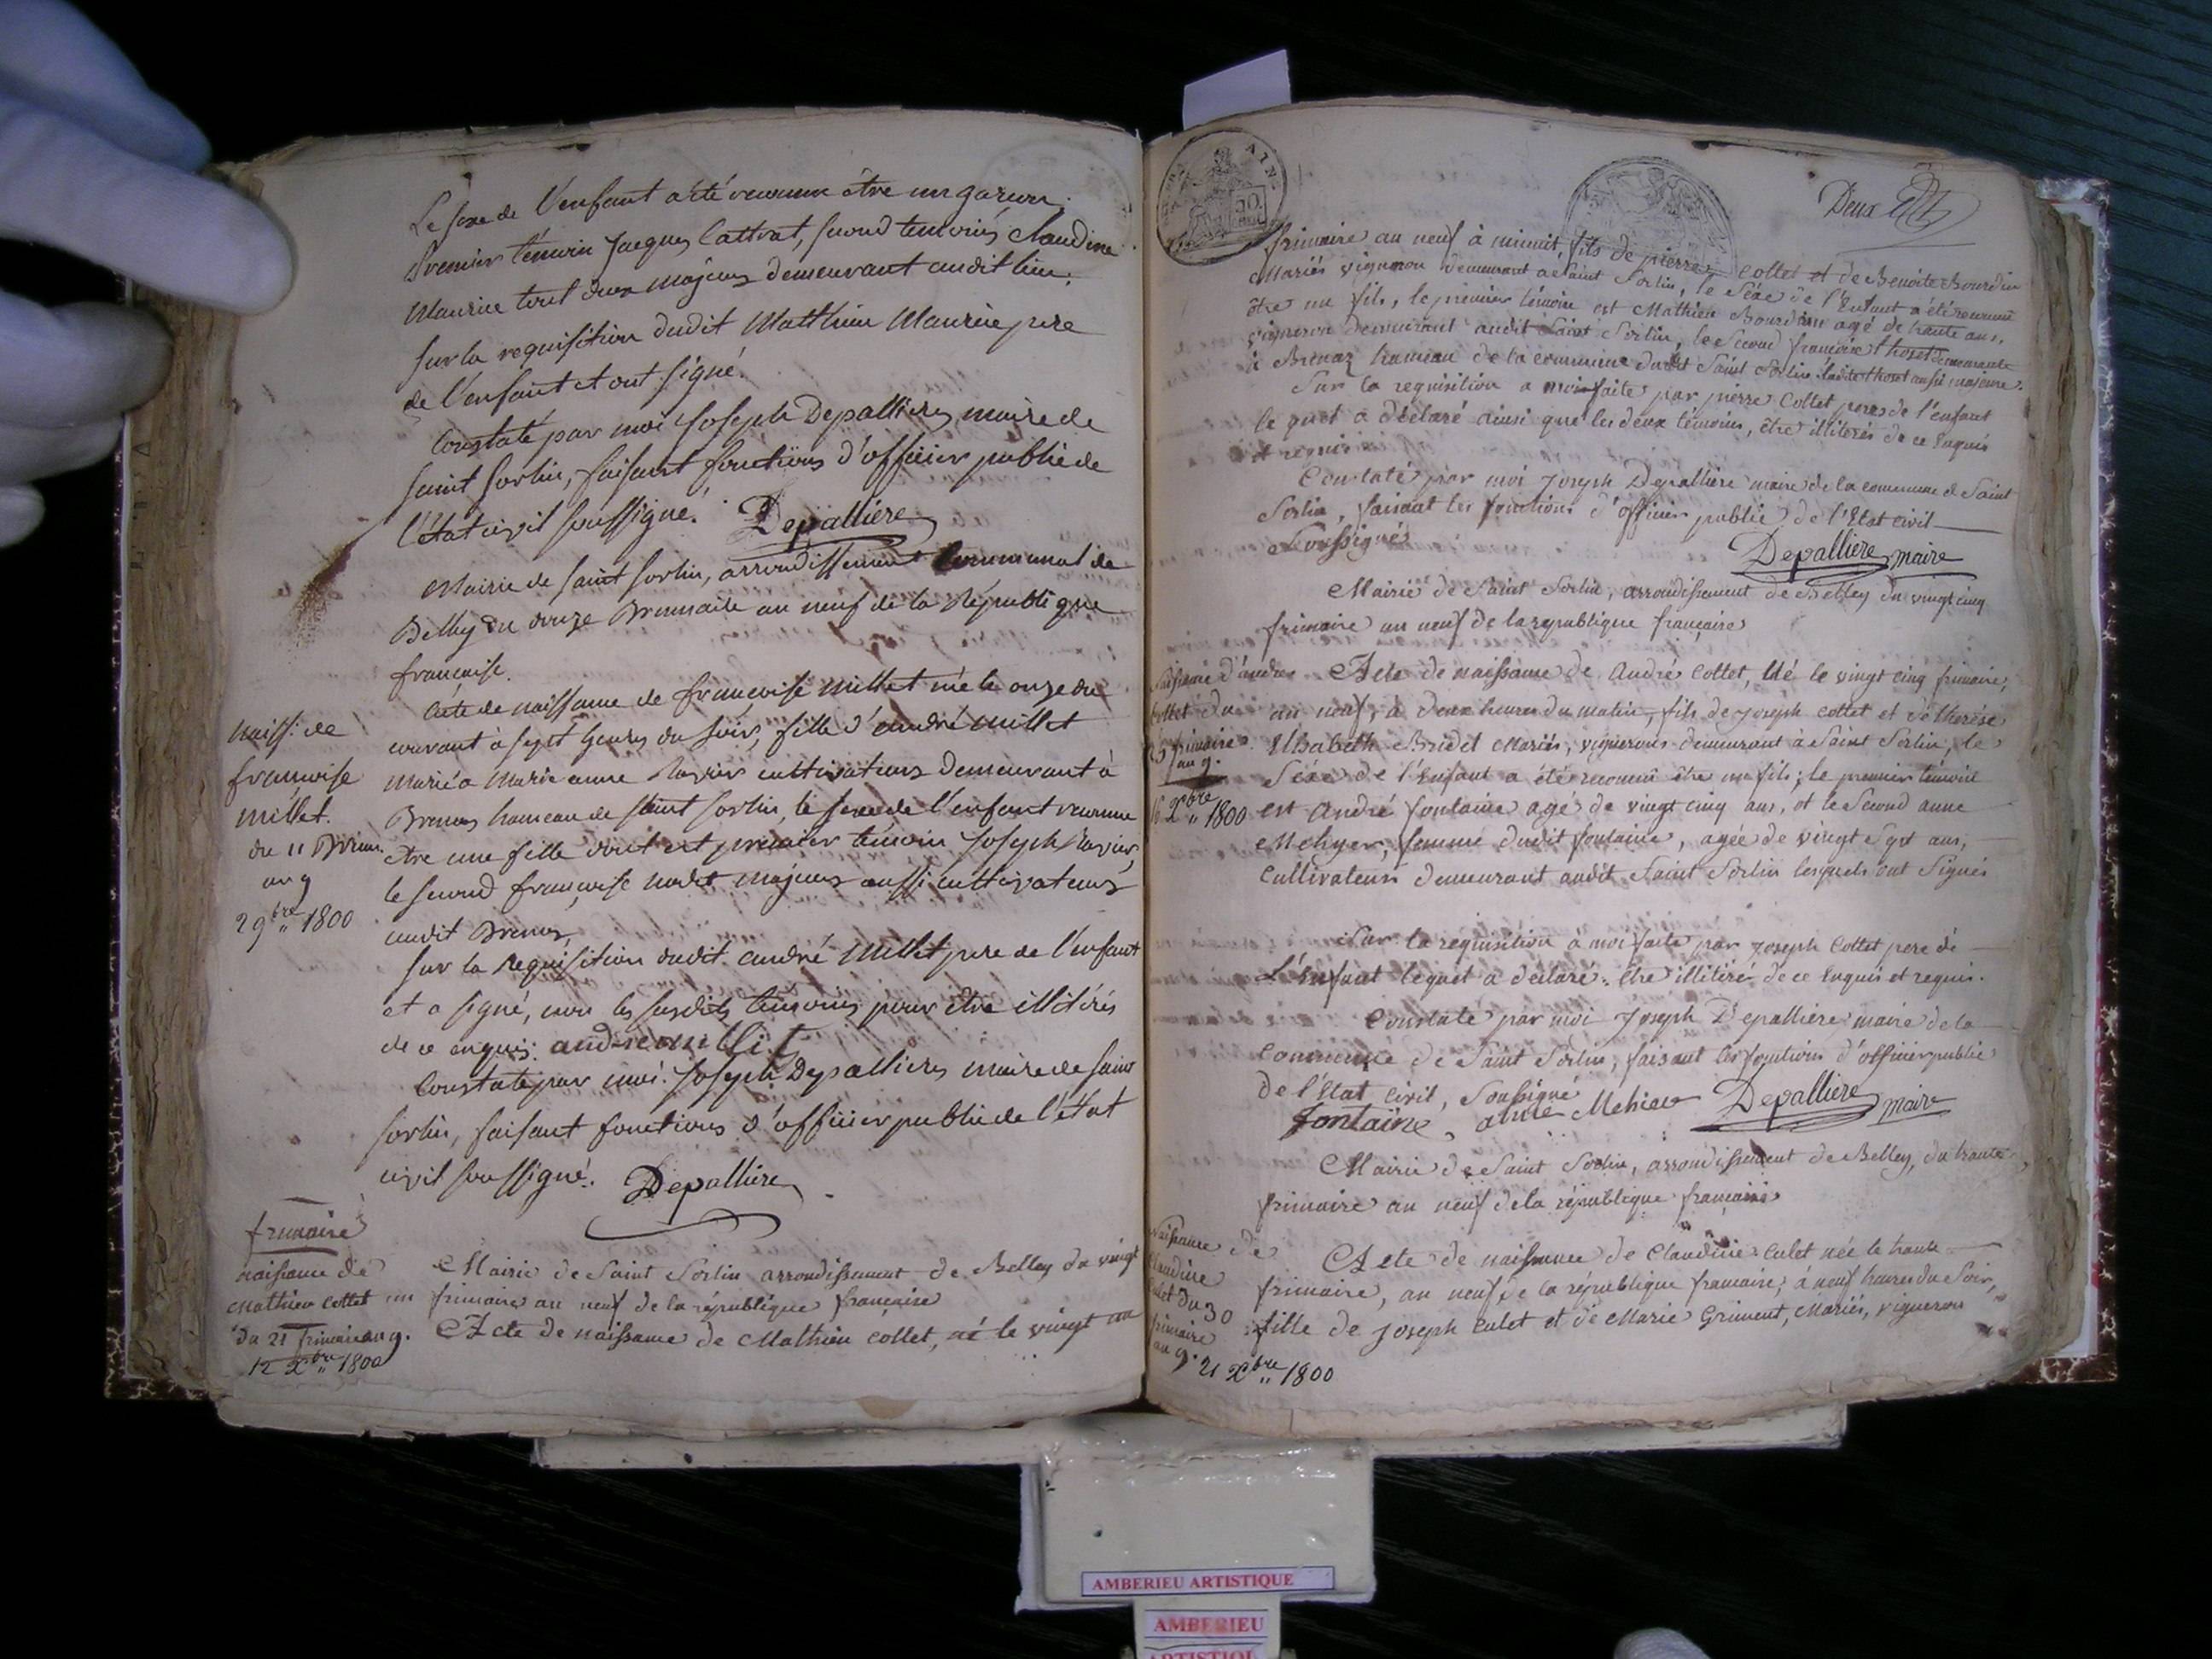 Le sexe de l'enfant a été reconnu être un garçon.
Premier témoin Jacques Cattrat, second temoins Claudine
Maurine tout deux majeurs demeurant audit lieu.
Sur la requisition dudit Matthieu Maurine pere
de l'enfant et ont signé.
Constaté par moi Joseph Depalliere, maire de
Saint Sorlin, faisant fonctions d'officier public de
l'état civil soussigné. Depalliere
Mairie de Saint Sorlin, arrondissement Communal de
Belley du douze Brumaire an neuf de la République
française.
Naiss: de
françoise
millet.
du 11 Brum.
an 9
2 9bre 1800
Acte de naissance de françoise millet née le onze du
courant à sept heures du soir, fille d'andré millet
marié a Marie anne Ravier cultivateurs demeurant à
hameau de Saint Sorlin, le sexe de l'enfant reconnu
être une fille dont est premier témoin Joseph Ravier,
le second françoise majeurs aussi cultivateurs
audit
Sur la Requisition dudit andré Millet pere de l'enfant
et a signé, non les susdits témoins pour être illitérés
de ce enquis. andre millit
Constaté par moi Joseph Depalliere, maire de Saint
Sorlin, faisant fonctions d'officier public de l'état
civil soussigné. Depalliere
frimaire
naissance de
Mathieu Collet
du 21 frimaire an 9.
12 Xbre 1800
Mairie de Saint Sorlin arrondissement de Belley du vingt
un frimaire an neuf de la république française
Acte de naissance de Mathieu Collet, né le vingt un
AIN
Deux
frimaire an neuf à minuit, fils de pierre Collet et de Benoite Bourdin
Mariés vigneron demeurant à Saint Sorlin, le Séxe de l'Enfant a été reconnu
être un fils, le premier témoin est Mathieu Bourdin agé de trente ans,
vigneron demeurant audit Saint Sorlin, le Second françoise thoset demeurante
à hameau de la commune dudit Saint Sorlin ladite thoset aussi majeure.
Sur la requisition a moi faite par pierre Collet pere de l'enfant
le quel a déclaré ainsi que les deux temoins, être illiterés de ce Enquis
et requis
Constaté par moi Joseph Depalliere maire de la commune de Saint
Sorlin, faisant les fonctions d'officier public de l'Etat civil
Soussigné
Depalliere maire
Mairie de Saint Sorlin, arrondissement de Belley du vingt cinq
frimaire an neuf de la republique française
Naissance d'andré
Collet du
25 frimaire
an 9.
16 Xbre 1800
Acte de naissance de André Collet, Né le vingt cinq frimaire,
an neuf, à deux heures du matin, fils de Joseph Collet et de therése
Elisabeth Bridet Mariés, vignerons demeurant à Saint Sorlin, le
Séxe de l'Enfant a été reconnu être un fils; le premier témoin
est André fontaine agé de vingt cinq ans, et le Second anne
femme dudit fontaine, agée de vingt Sept ans,
Cultivateurs demeurant audit Saint Sorlin lesquels ont Signés
Sur la requisition à moi faite par Joseph Collet pere de
L'Enfant lequel a déclaré être illitéré de ce Enquis et requis.
Constaté par moi Joseph Depalliere maire de la
Commune de Saint Sorlin, faisant les fonctions d'officier public
de l'Etat Civil, Soussigné
fontaine, anne Mehier Depalliere maire
Mairie de Saint Sorlin, arrondissement de Belley, du trente
frimaire an neuf de la république française
Naissance de
Claudine
Culet du 30
frimaire
an 9. 21 Xbre 1800
Acte de naissance de Claudine Culet née le trente
frimaire, an neuf de la république francaise, à neuf heures du Soir,
fille de Joseph Culet et de Marie Griment, Mariés, vignerons
AMBERIEU ARTISTIQUE
AMBERIEU